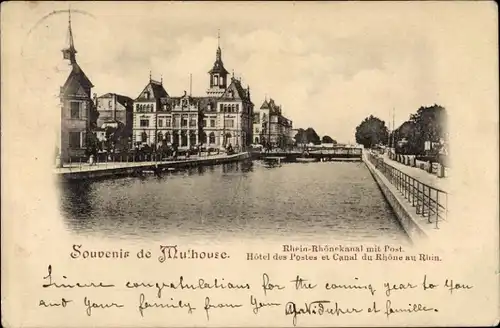 Souvenir de Mulhouse.
Rhein-Rhônekanal mit Post.
Hôtel des Postes et Canal du Rhône au Rhin.
Sincere congratulations for the coming year to you
and your family from your
Father et famille.